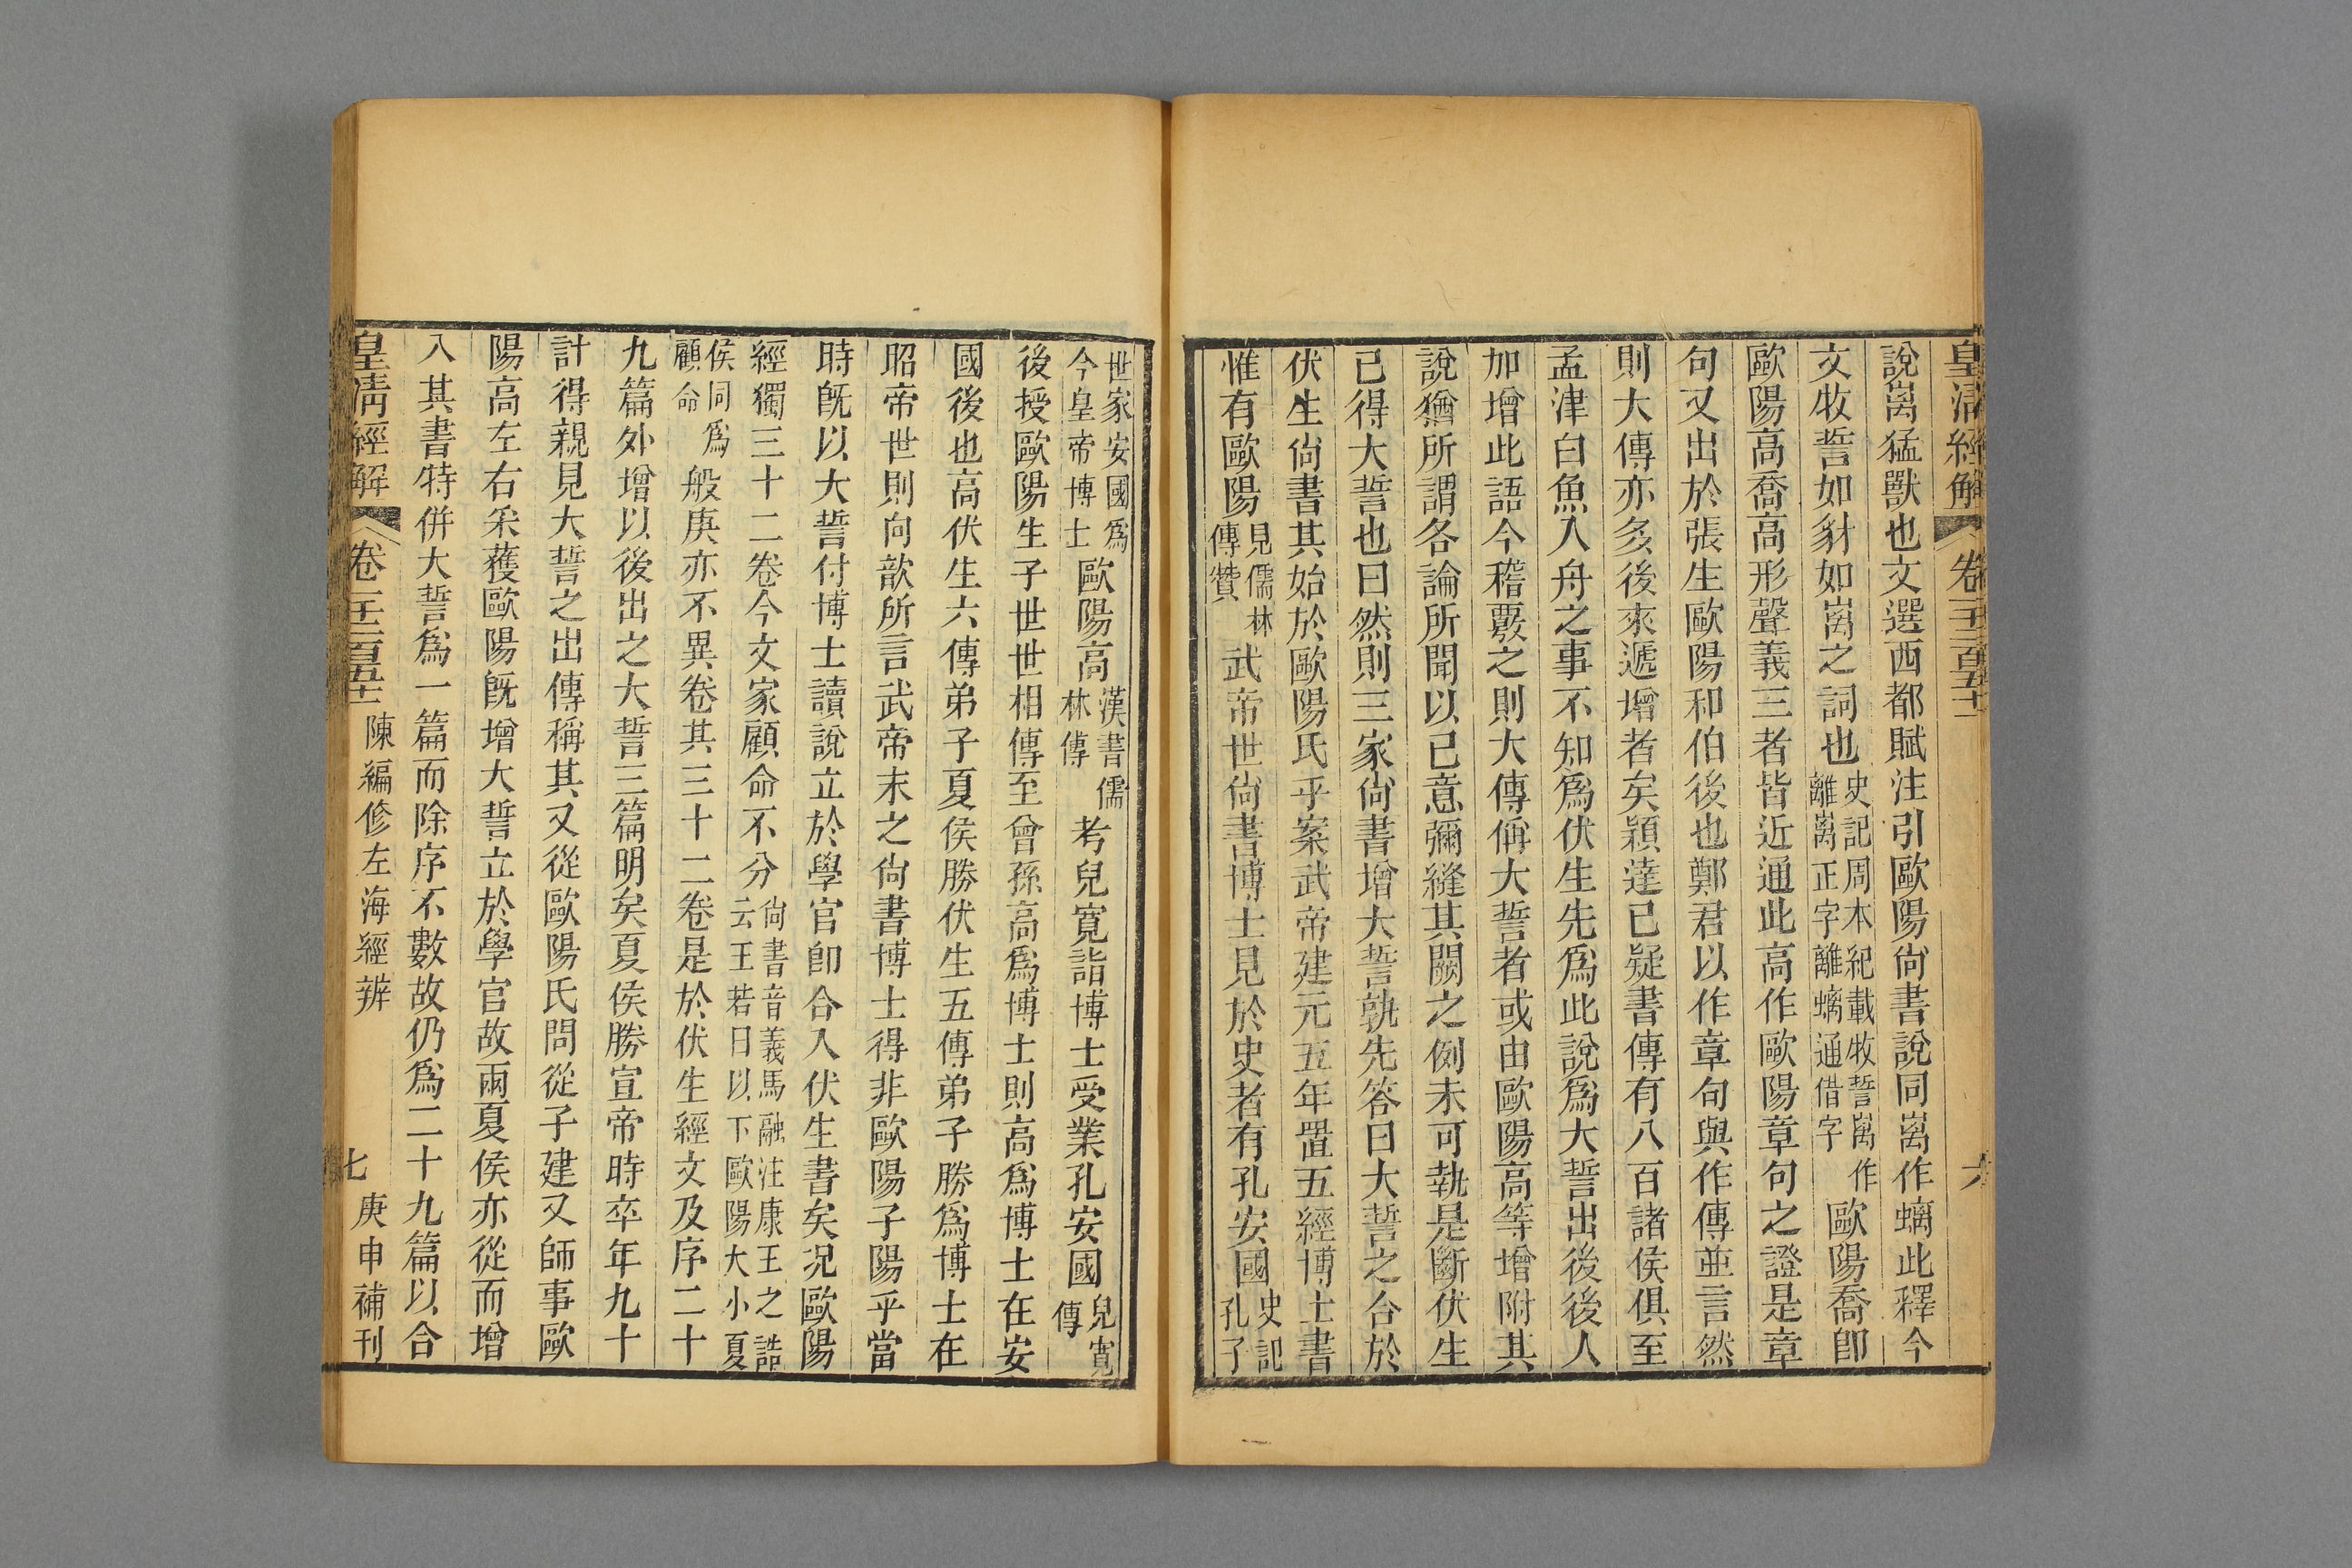 皇清經解 卷一千二百五十一 六
說离猛獸也文選西都賦注引歐陽尙書說同离作螭此釋今
文牧誓如豺如离之詞也史記周本紀載牧誓离作離离正字離螭通借字歐陽喬卽
歐陽高喬高形聲義三者皆近通此高作歐陽章句之證是章
句又出於張生歐陽和伯後也鄭君以作章句與作傳並言然
則大傳亦多後來遞增者矣穎達已疑書傳有八百諸侯俱至
孟津白魚入舟之事不知爲伏生先爲此說爲大誓出後後人
加增此語今稽覈之則大傳偁大誓者或由歐陽高等增附其
說猶所謂各論所聞以已意彌縫其闕之例未可執是斷伏生
已得大誓也曰然則三家尙書增大誓孰先答曰大誓之合於
伏生尙書其始於歐陽氏乎案武帝建元五年置五經博士書
惟有歐陽見儒林傳贊武帝世尙書博士見於史者有孔安國史記孔子
世家安國爲今皇帝博士歐陽高漢書儒林傳考兒寬詣博士受業孔安國兒寬傳
後授歐陽生子世世相傳至曾孫高爲博士則高爲博士在安
國後也高伏生六傳弟子夏侯勝伏生五傳弟子勝爲博士在
昭帝世則向歆所言武帝末之尙書博士得非歐陽子陽乎當
時旣以大誓付博士讀說立於學官卽合入伏生書矣況歐陽
經獨三十二卷今文家顧命不分尙書音義馬融注康王之誥云王若曰以下歐陽大小夏
侯同爲顧命般庚亦不異卷其三十二卷是於伏生經文及序二十
九篇外增以後出之大誓三篇明矣夏侯勝宣帝時卒年九十
計得親見大誓之出傳稱其又從歐陽氏問從子建又師事歐
陽高左右采獲歐陽旣增大誓立於學官故兩夏侯亦從而增
入其書特併大誓爲一篇而除序不數故仍爲二十九篇以合
皇清經解 卷一千二百五十一 陳編修左海經辨 七 庚申補刊